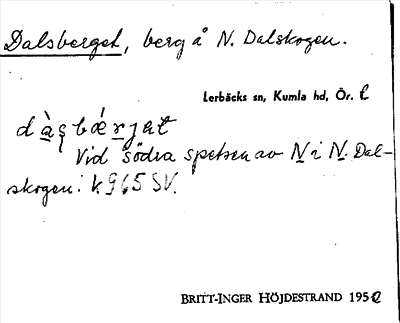 Dalsberget, berg å N. Dalskogen.
Lerbäcks sn, Kumla hd, Ör. l
dàs̱bǽrjat
Vid södra spetsen av N i N. Dal-
skogen. k 965 SV.
BRITT-INGER HÖJDESTRAND 195